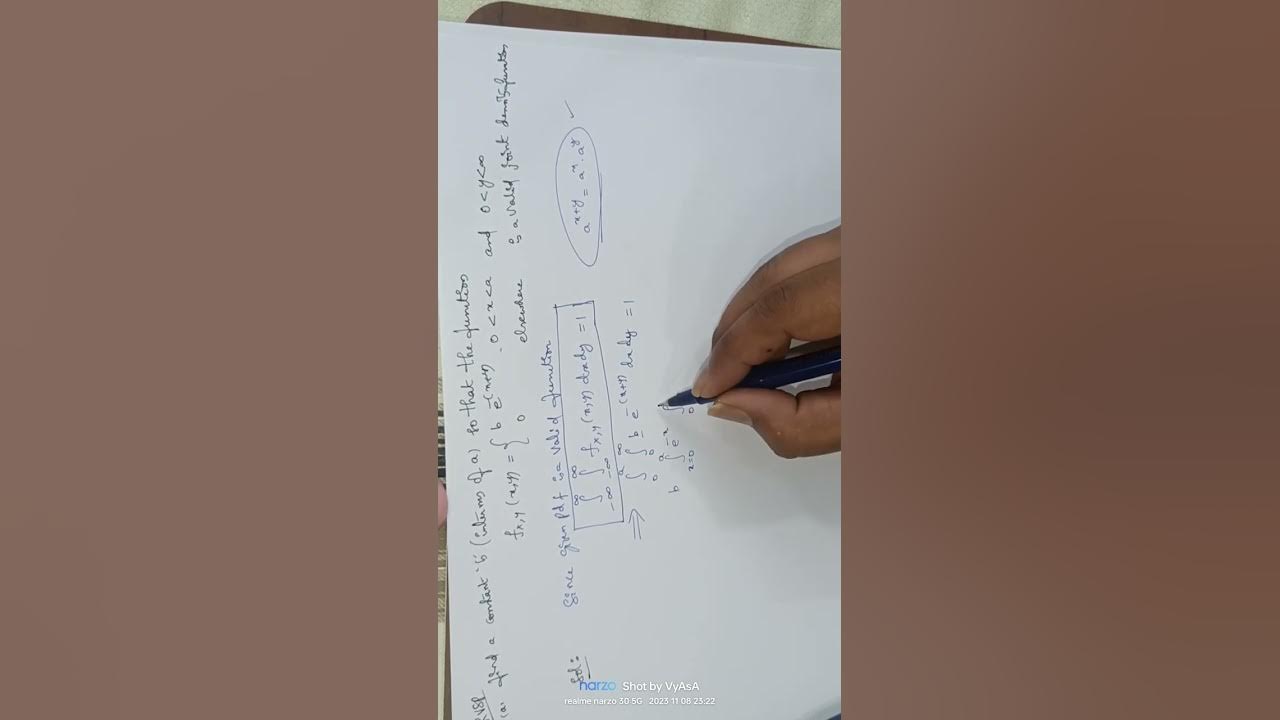 RVSP
Find a constant 'b' (interms of a) so that the function
f_{X,Y}(x,y) = { b e^{-(x+y)} 0 < x < a and 0 < y < ∞
0 elsewhere
is a valid joint density function
Sol:
Since given pdf is a valid function
∫_{-∞}^{∞} ∫_{-∞}^{∞} f_{X,Y}(x,y) dx dy = 1
a^{x+y} = a^x . a^y ✓
⇒ ∫_0^a ∫_0^∞ b e^{-(x+y)} dx dy = 1
b ∫_{x=0}^a e^{-x} ∫_0
narzo Shot by VyAsA
realme narzo 30 5G 2023 11 08 23:22